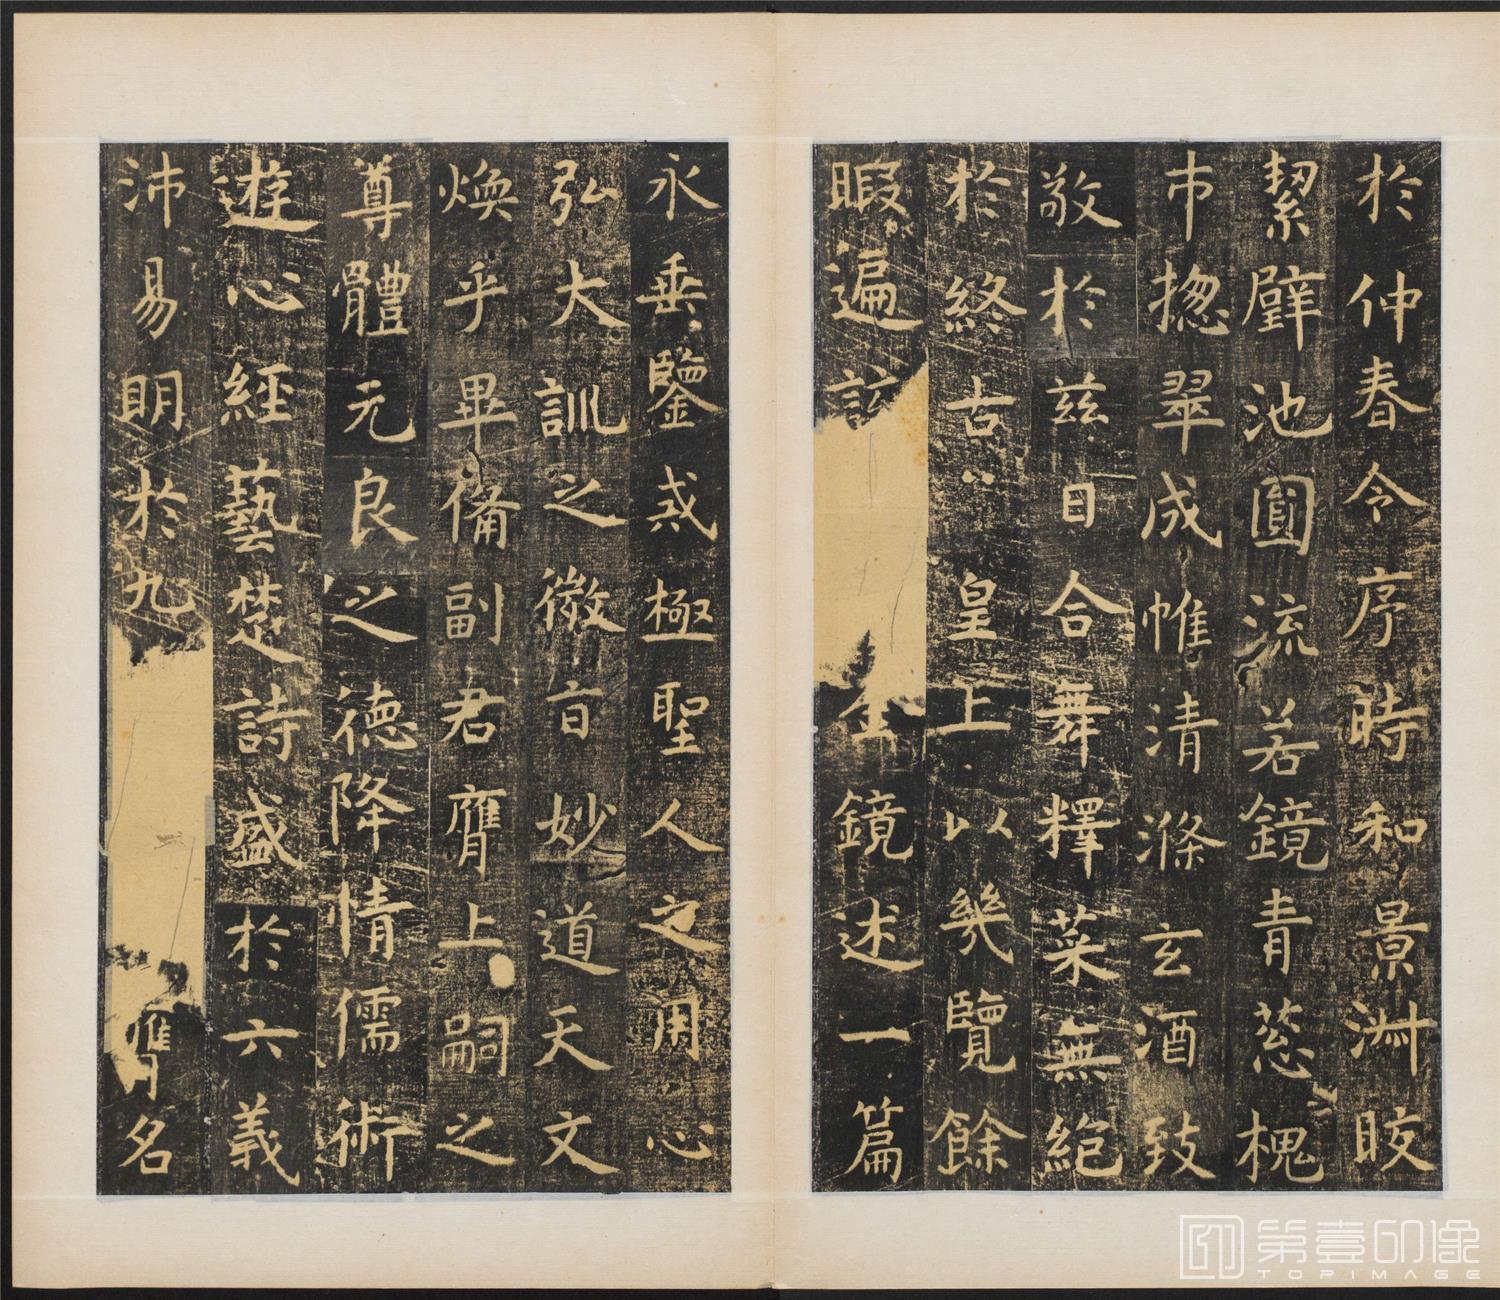 於仲春令序時和景淑皎
絜璧池圓流若鏡青葱槐
市揔翠成帷清滌玄酒致
敬於兹日合舞釋菜無絕
於終古皇上以幾覽餘
暇遍該金鏡述一篇
永垂鑒戒極聖人之用心
弘大訓之微旨妙道天文
煥乎畢備副君膺上嗣之
尊體元良之德降情儒術
遊心經藝楚詩盛於六義
沛易明於九膺名
第壹印像
TOPIMAGE